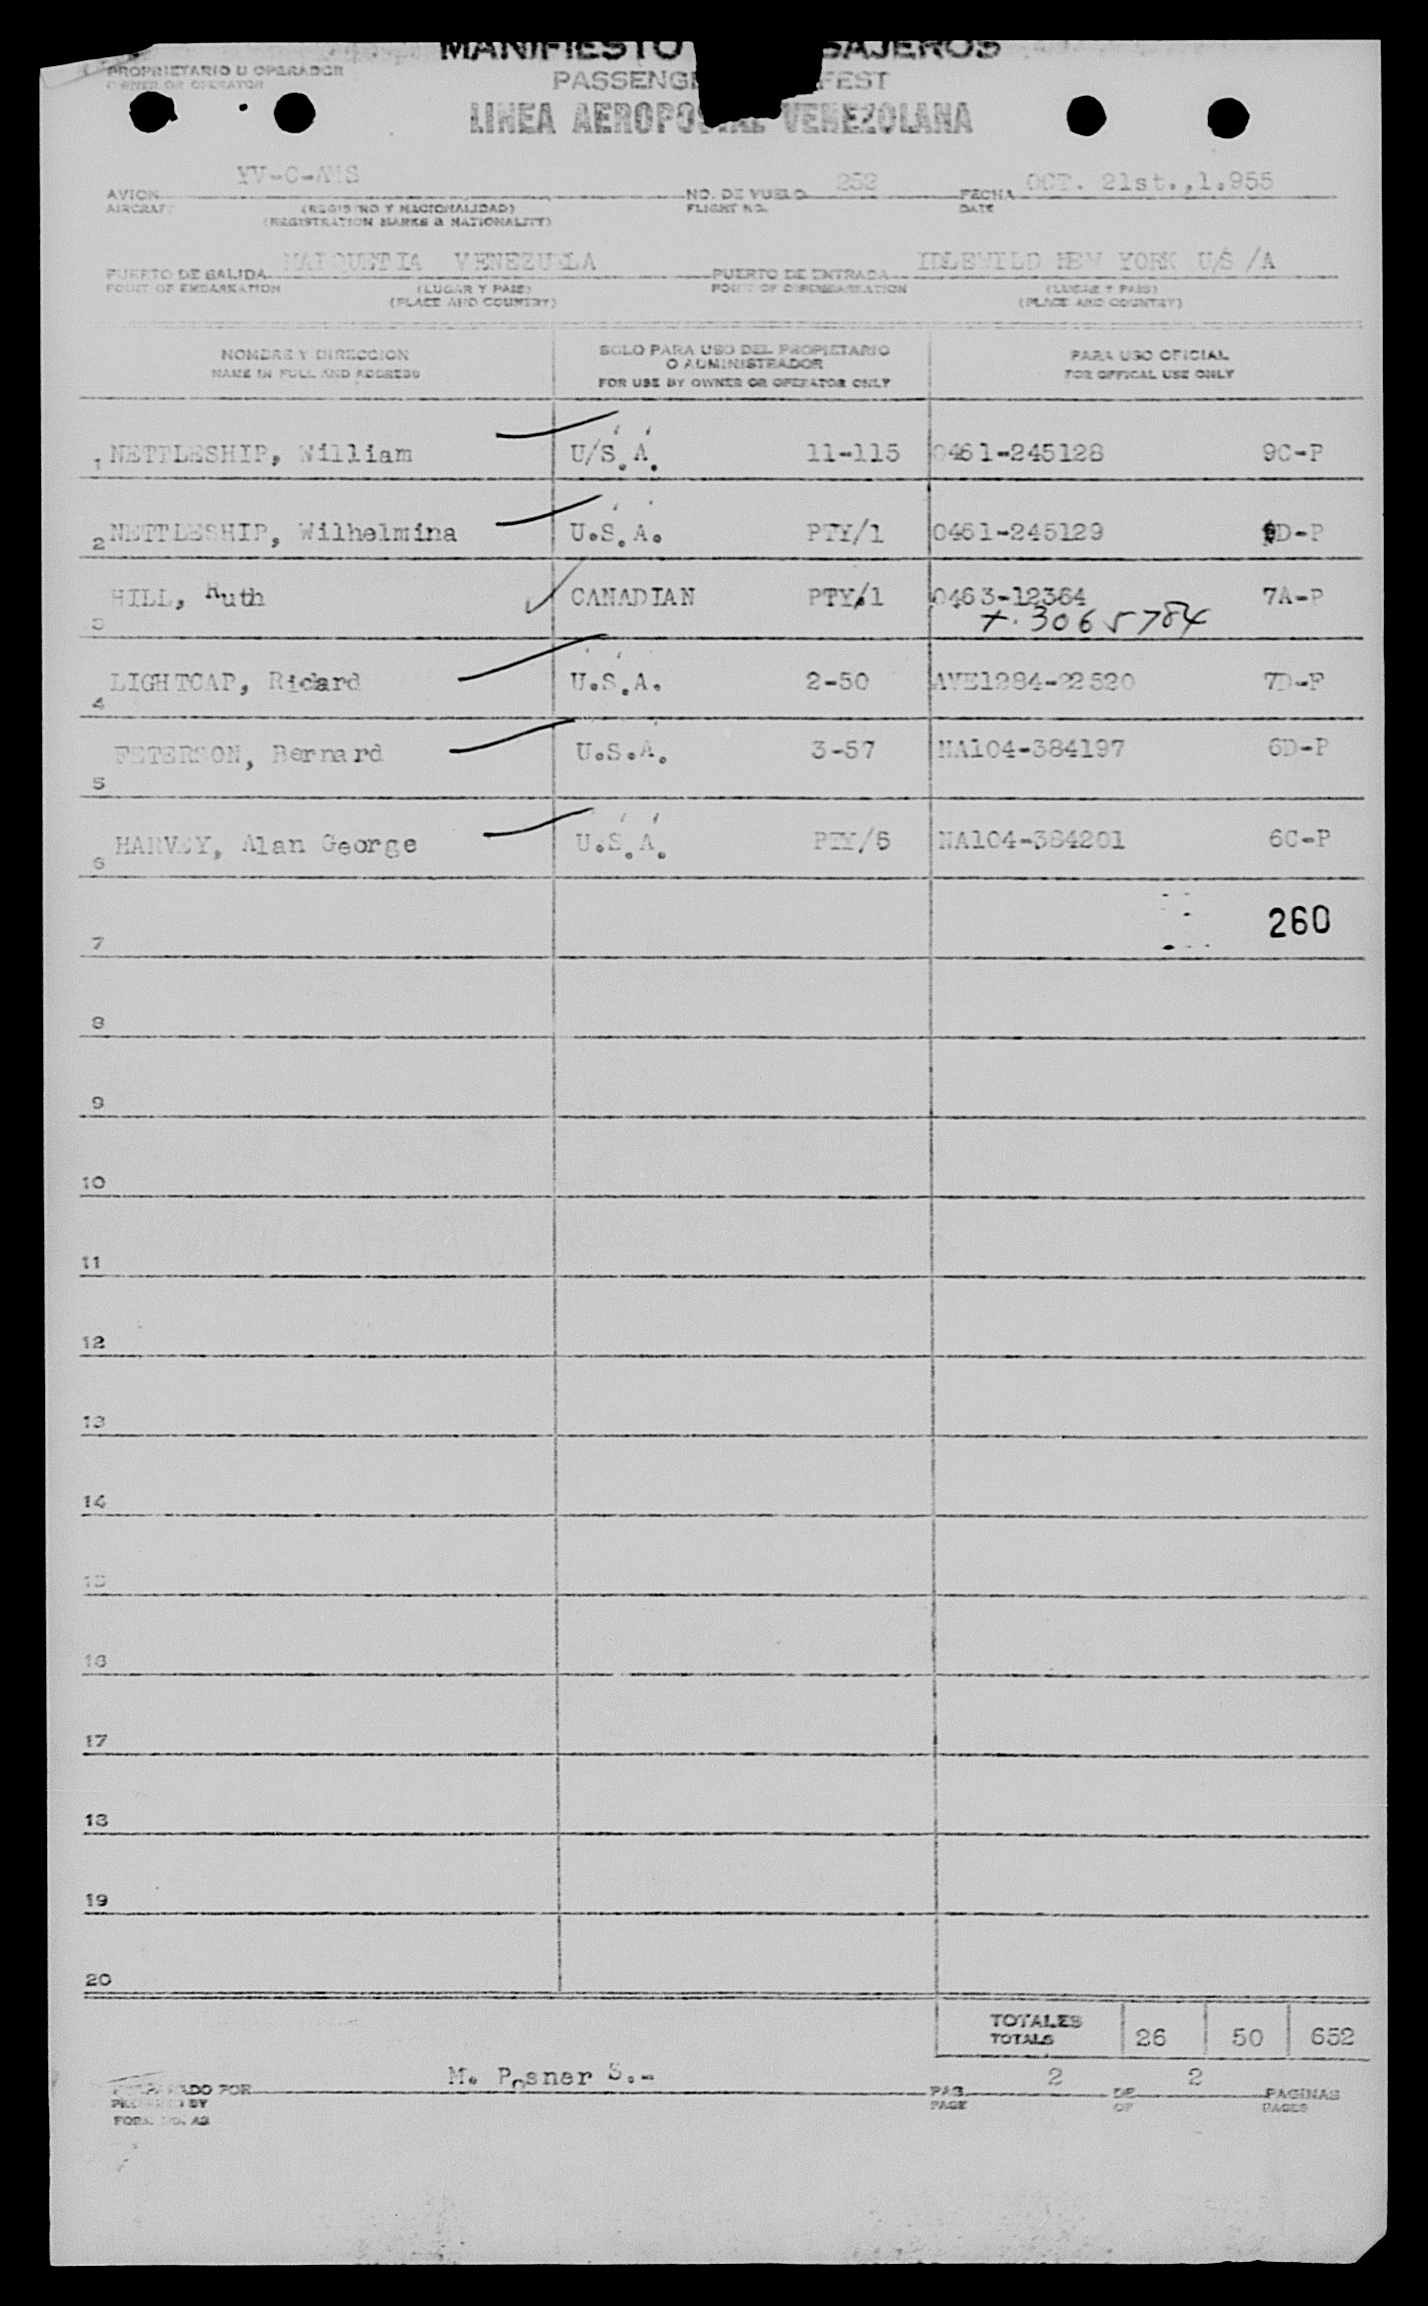 MANIFIESTO SAJEROS
PROPRIETARIO U OPERADOR
OWNER OR OPERATOR
PASSENGE FEST
LINEA AEROPOSTAL VENEZOLANA
YV-C-AMS 252 OCT. 21st.,1.955
AVION NO. DE VUELO FECHA
AIRCRAFT (REGISTRO Y NACIONALIDAD) FLIGHT NO. DATE
(REGISTRATION MARKS & NATIONALITY)
MAIQUETIA VENEZUELA IDLEWILD NEW YORK U/S/A
PUERTO DE SALIDA PUERTO DE ENTRADA
POINT OF EMBARKATION (LUGAR Y PAIS) POINT OF DISEMBARKATION (LUGAR Y PAIS)
(PLACE AND COUNTRY) (PLACE AND COUNTRY)
NOMBRE Y DIRECCION SOLO PARA USO DEL PROPIETARIO PARA USO OFICIAL
NAME IN FULL AND ADDRESS O ADMINISTRADOR FOR OFFICAL USE ONLY
FOR USE BY OWNER OR OPERATOR ONLY
1 NETTLESHIP, William U/S.A. 11-115 0461-245128 9C-P
2 NETTLESHIP, Wilhelmina U.S.A. PTY/1 0461-245129 9D-P
3 HILL, Ruth CANADIAN PTY.1 0463-12364 7A-P
+. 3065784
4 LIGHTCAP, Ricard U.S.A. 2-50 AVE1284-22520 7D-P
5 PETERSON, Bernard U.S.A. 3-57 NA104-384197 6D-P
6 HARVEY, Alan George U.S.A. PTY/5 NA104-384201 6C-P
260
7
8
9
10
11
12
13
14
15
16
17
18
19
20
TOTALES 26 50 652
TOTALS
M. Posner S.- 2 2
PREPARADO POR PAG. DE PAGINAS
PREPARED BY PAGE OF PAGES
FORM. NO. A3